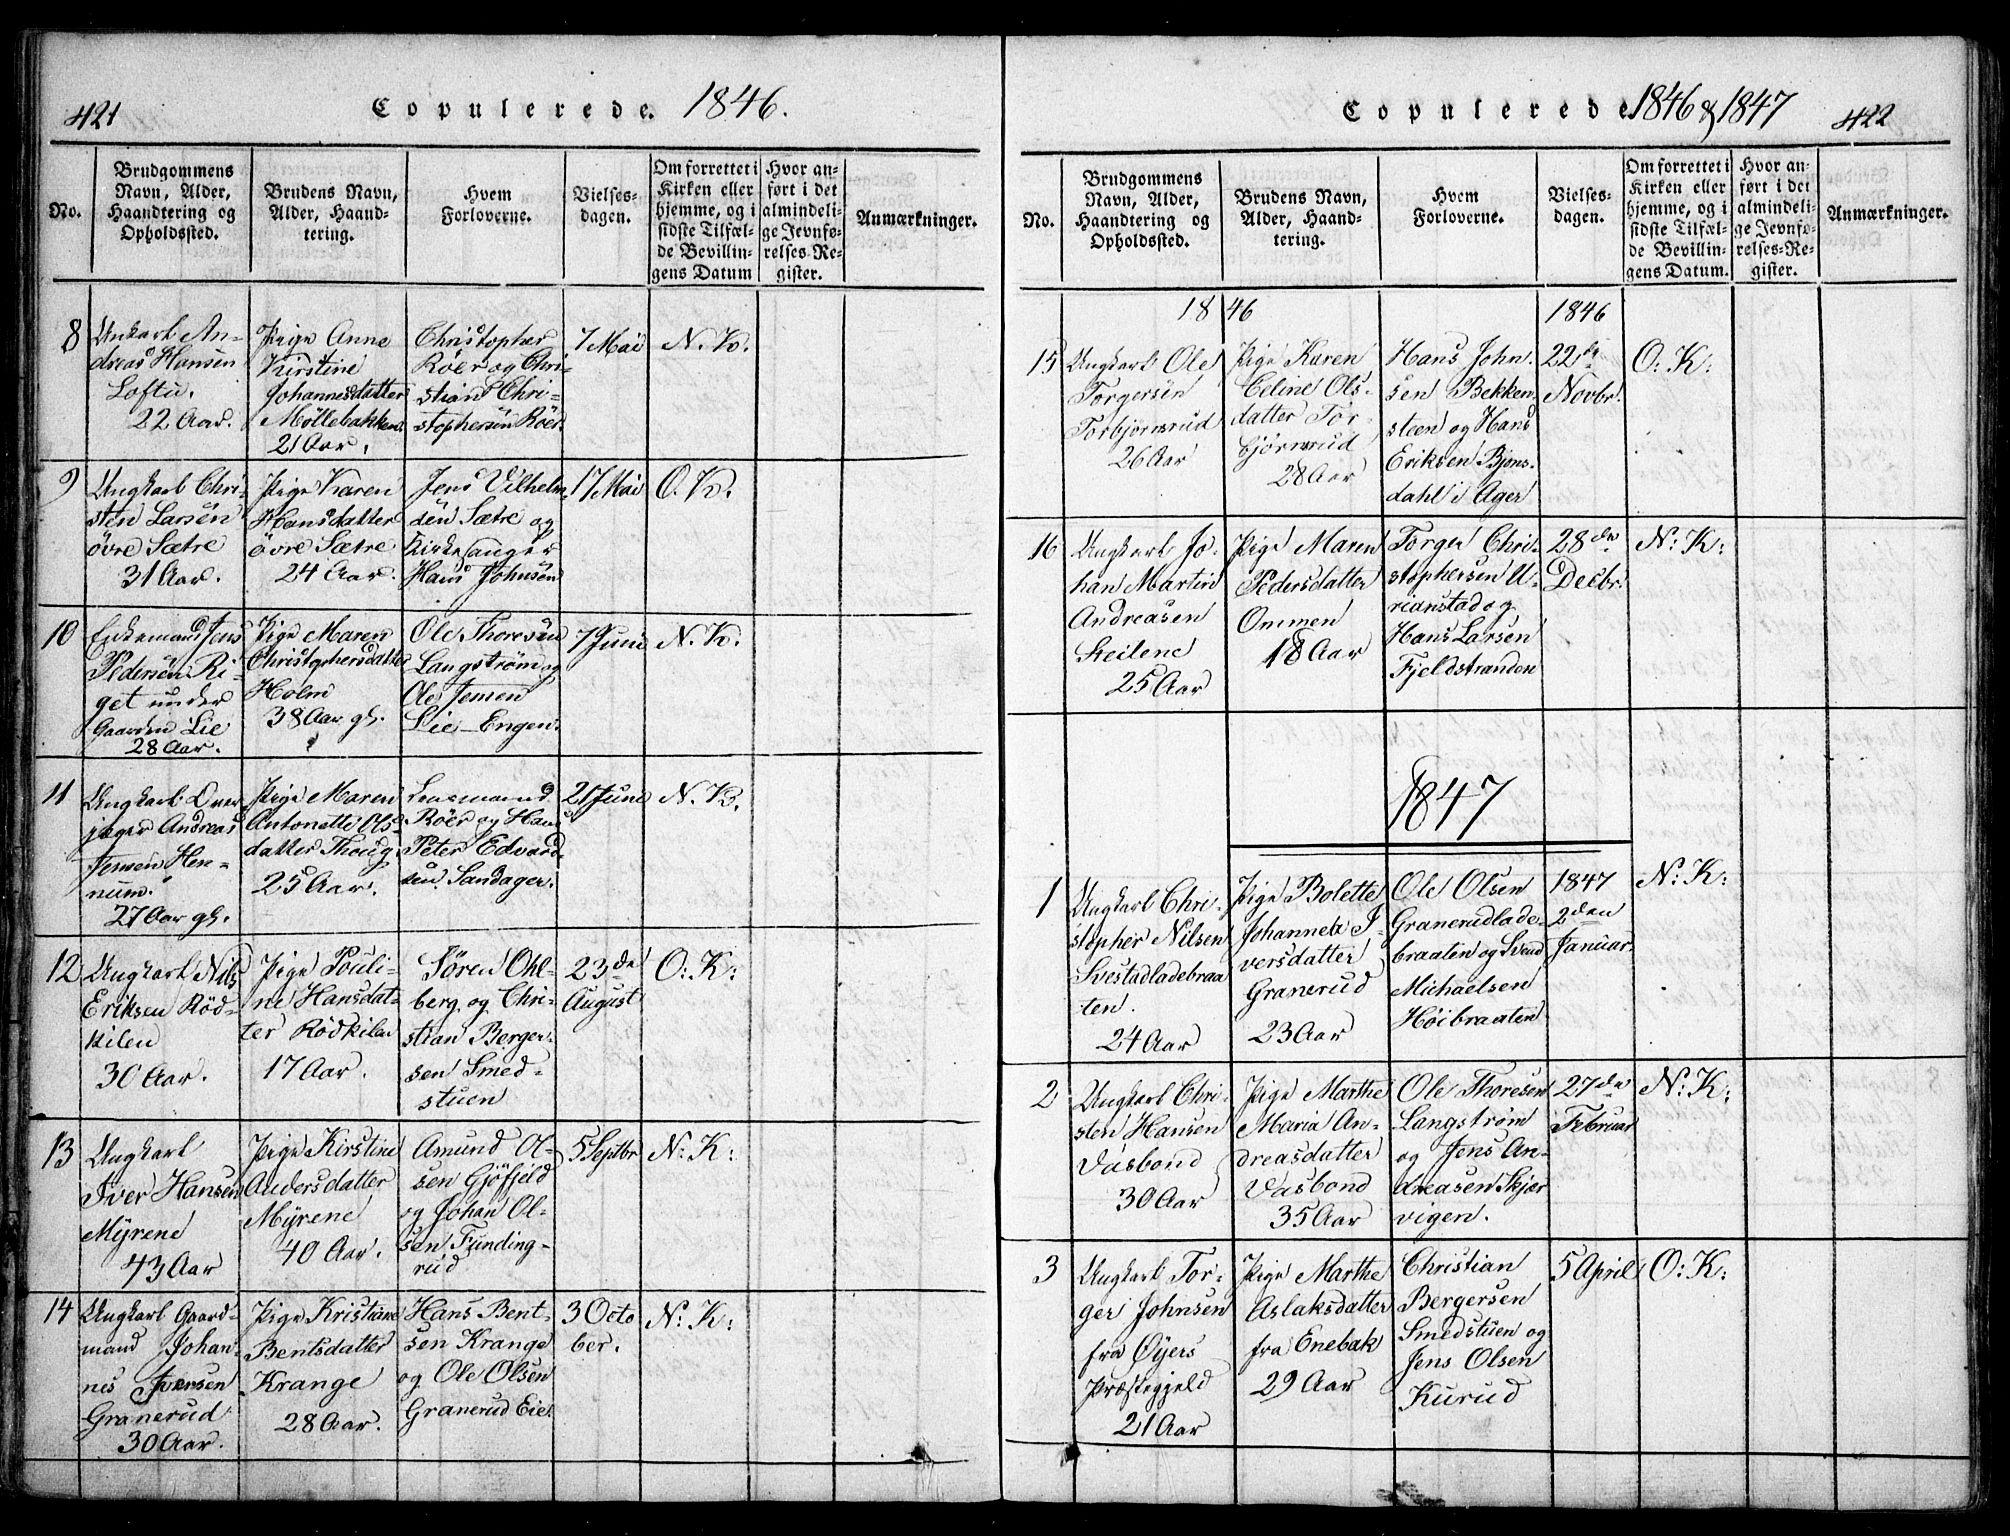 421
Copulerede. 1846.
No.
Brudgommens
Navn, Alder,
Haandtering og
Opholdssted.
Brudens Navn,
Alder, Haand-
tering.
Hvem
Forloverne.
Vielses-
dagen.
Om forrettet i
Kirken eller
hjemme, og i
sidste Tilfæl-
de Bevillin-
gens Datum
Hvor an-
ført i det
almindeli-
ge Jevnfø-
relses-Re-
gister.
Anmærkninger.
8
Unkarl An-
dreas Hansen
Loftu.
22 Aar.
Pige Anne
Kirstine
Johannesdatter
Møllebakken
21 Aar.
Christopher
Röer og Chri-
stian Chri-
stophersen Röer
7 Mai
N. K.
9
Ungkarl Chri-
sten Larsen
övre Sætre
31 Aar.
Pige Karen
Hansdatter
övre Sætre
24 Aar.
Jens Vilhelm-
sen Sætre og
Kirkesanger
Hans Johnsen
17 Mai
O. K.
10
Enkemand Jens
Pedersen Ri-
get under
Gaarden Lie
28 Aar.
Pige Maren
Christophersdatter
Holm
38 Aar gl.
Ole Thoresen
Langström og
Ole Jensen
Lie-Engen.
7 Juni
N. K.
11
Ungkarl Over
jæger Andreas
Jensen Hen-
num.
27 Aar gl.
Pige Maren
Antonette Ols-
datter Thoug
25 Aar.
Lensmand
Röer og Hans
Peter Edvard-
sen Sandager.
21 Juni
N. K.
12
Ungkarl Nils
Eriksen Röd-
kilen
30 Aar.
Pige Pouli-
ne Hansdat-
ter Rödkilen
17 Aar.
Sören Ohl-
berg og Chri-
stian Berger-
sen Smed-
stuen
23de
August
O: K:
13
Ungkarl
Iver Hansen
Myrene
43 Aar
Pige Kirstine
Andersdatter
Myrene
40 Aar.
Amund Ol-
sen Gjöfjeld
og Johan Ol-
sen Funding-
rud
5 Septbr
N: K:
14
Ungkarl Gaard-
mand Johan-
nes Iversen
Granerud
30 Aar.
Pige Kristiane
Bentsdatter
Krange
28 Aar.
Hans Bent-
sen Krange
og Ole Olsen
Granerud Eie.
3 Octo
ber.
N: K:
Copulerede 1846 & 1847
422
No.
Brudgommens
Navn, Alder,
Haandtering og
Opholdssted.
Brudens Navn,
Alder, Haand-
tering.
Hvem
Forloverne.
Vielses-
dagen.
Om forrettet i
Kirken eller
hjemme, og i
sidste Tilfæl-
de Bevillin-
gens Datum.
Hvor an-
ført i det
almindeli-
ge Jevnfø-
relses-Re-
gister.
Anmærkninger.
1846
1846
15
Ungkarl Ole
Torgersen
Torbjörnsrud
26 Aar
Pige Karen
Celine Ols-
datter Tor-
björnsrud
28 Aar
Hans John-
sen Bekken-
steen og Hans
Eriksen Bjons-
dahl i Ager
22de
Novbr.
O: K:
16
Ungkarl Jo-
han Martin
Andreasen
Steilene
25 Aar
Pige Maren
Pedersdatter
Ommen
18 Aar
Torger Chri-
stophersen U-
rianstad og
Hans Larsen
Fjeldstranden
28de
Decbr.
N: K:
1847
1
Ungkarl Chri-
stopher Nilsen
Svestadladebraa
ten.
24 Aar
Pige Bolette
Johanneta I-
versdatter
Granerud
23 Aar
Ole Olsen
Granerudlade-
braaten og Svend
Michaelsen
Höibraaten
1847
2den
Januar
N: K:
2
Ungkarl Chri-
sten Hansen
Vasbond
30 Aar
Pige Marthe
Maria An-
dreasdatter
Vasbond
35 Aar
Ole Thoresen
Langström
og Jens An-
dreasen Skjær
vigen.
27de
Februar
N: K:
3
Ungkarl Tor-
ger Johnsen
fra Öyers
Præstegjeld
21 Aar
Pige Marthe
Aslaksdatter
fra Enebak
29 Aar
Christian
Bergersen
Smedstuen og
Jens Olsen
Kurud
5 April
O: K: